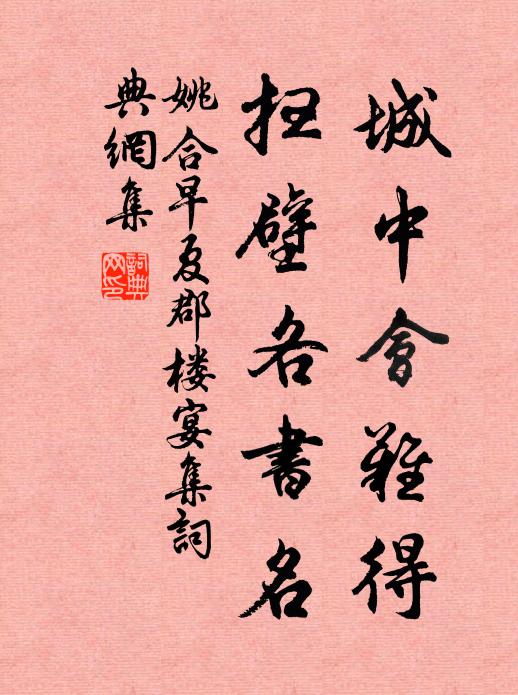 城中會難得
扫壁各書名
姚合早夏郡楼宴集詞
典網集
詞典网印